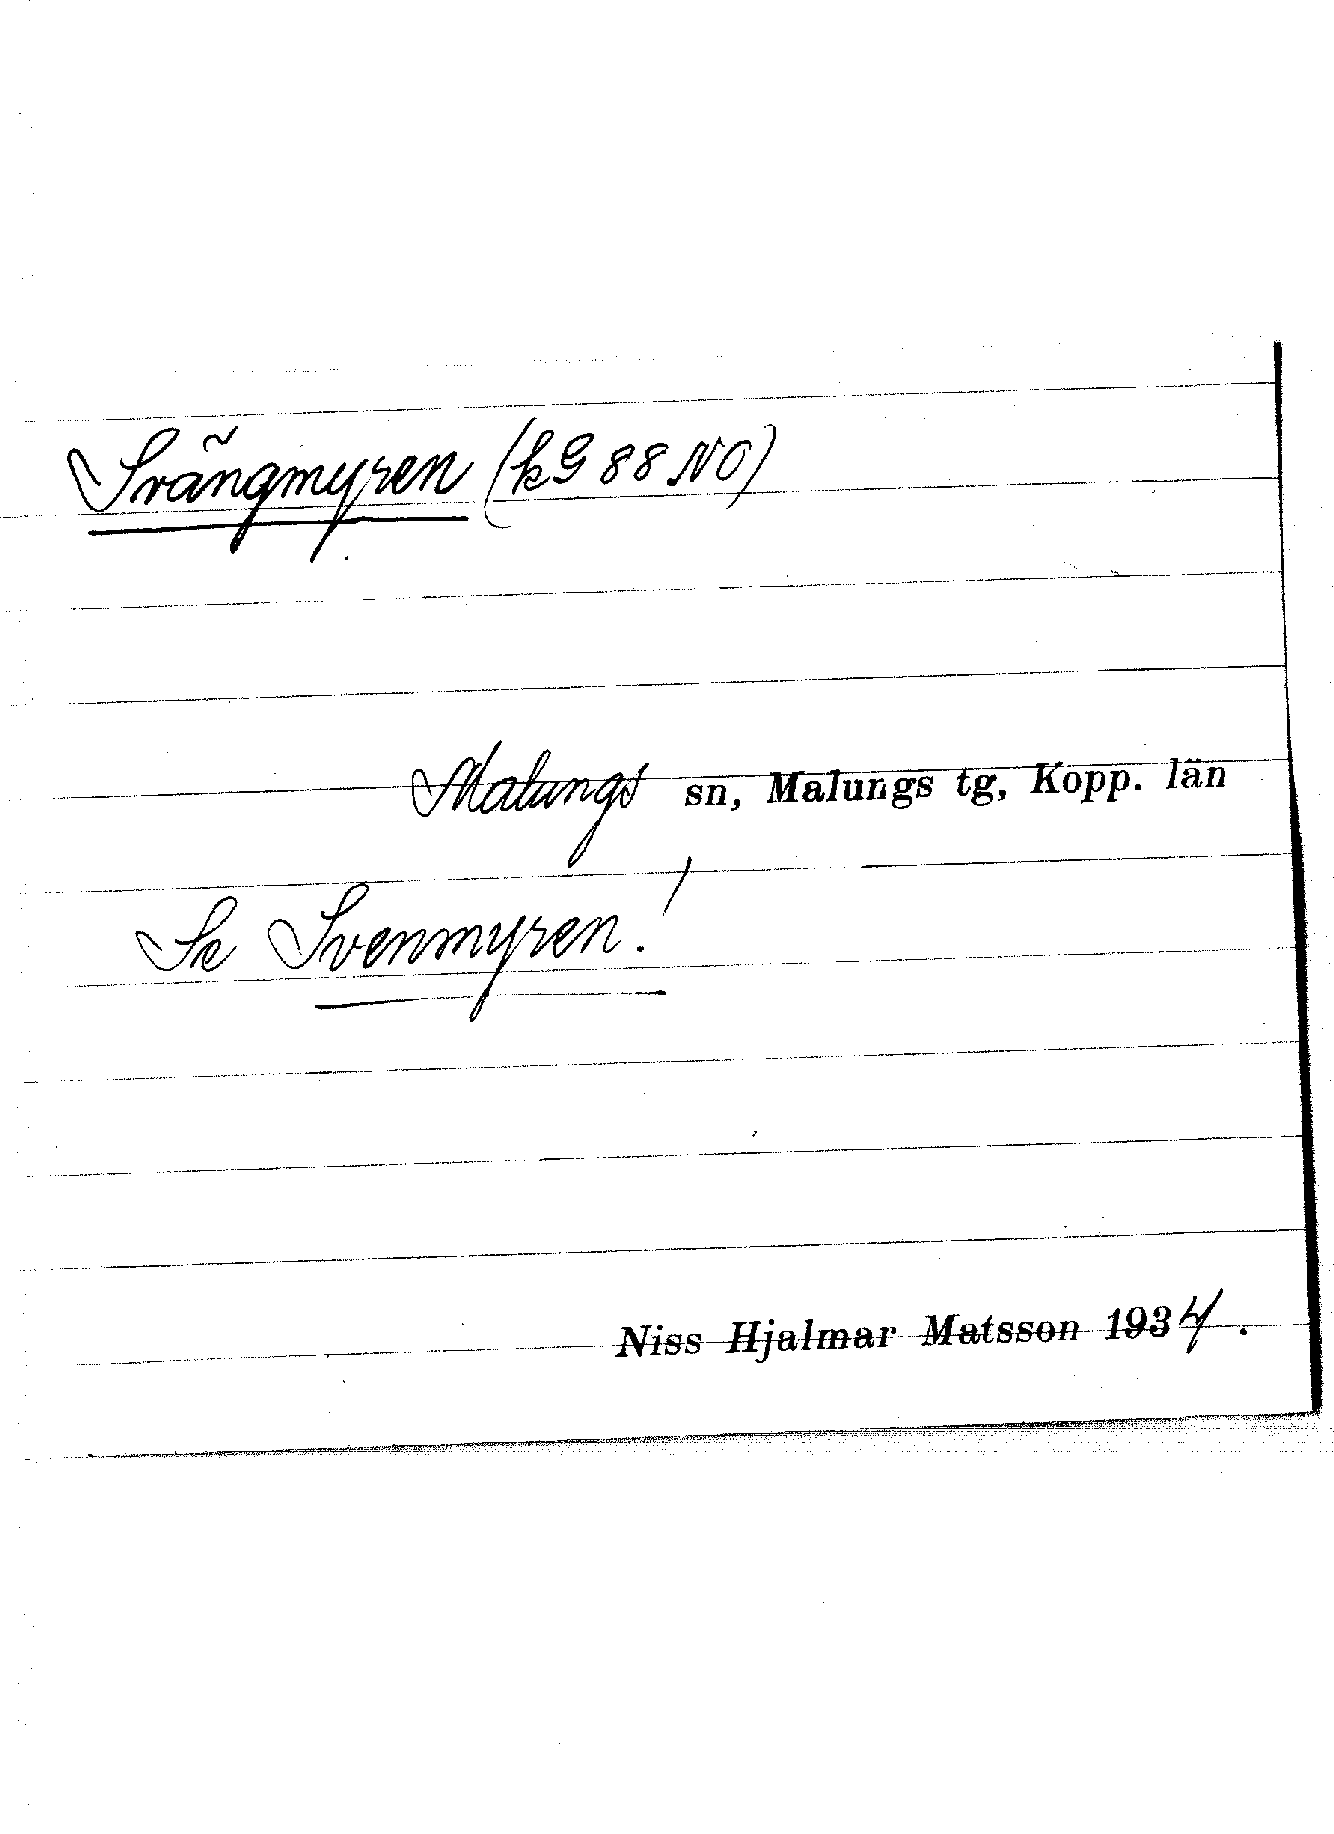 Svängmyren (kG 88 NO)
Malungs sn, Malungs tg, Kopp. län
Se Svenmyren!
Niss Hjalmar Matsson 1934.